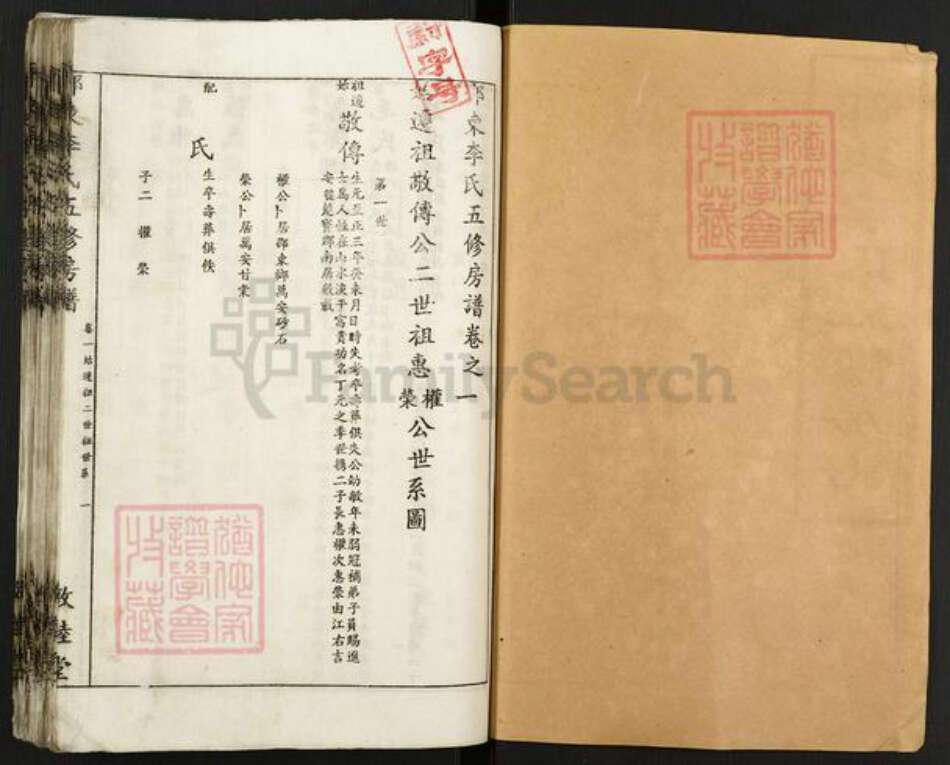 邵東李氏五修房譜卷之一
始遷祖敬傳公二世祖惠權榮公世系圖
第一世
始遷祖
敬傳
生元至正三年癸未月日時失考卒壽葬俱失公幼敏年未弱冠補弟子員賜進
士為人性在山水淡乎富貴功名丁元之季世携二子長惠權次惠榮由江右吉
權公卜居邵東鄉萬安砂石
榮公卜居萬安甘棠
配
氏
生卒壽葬俱佚
子二 權 榮
卷一始遷祖二世祖世系 一
邵東李氏五修房譜
敦睦堂
字号
FamilySearch